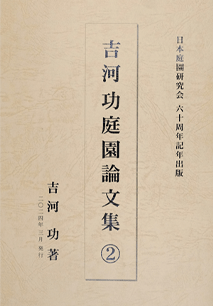 日本庭園研究会 六十周年記年出版
吉河功庭園論文集②
吉河 功 著
二〇二四年三月 発行